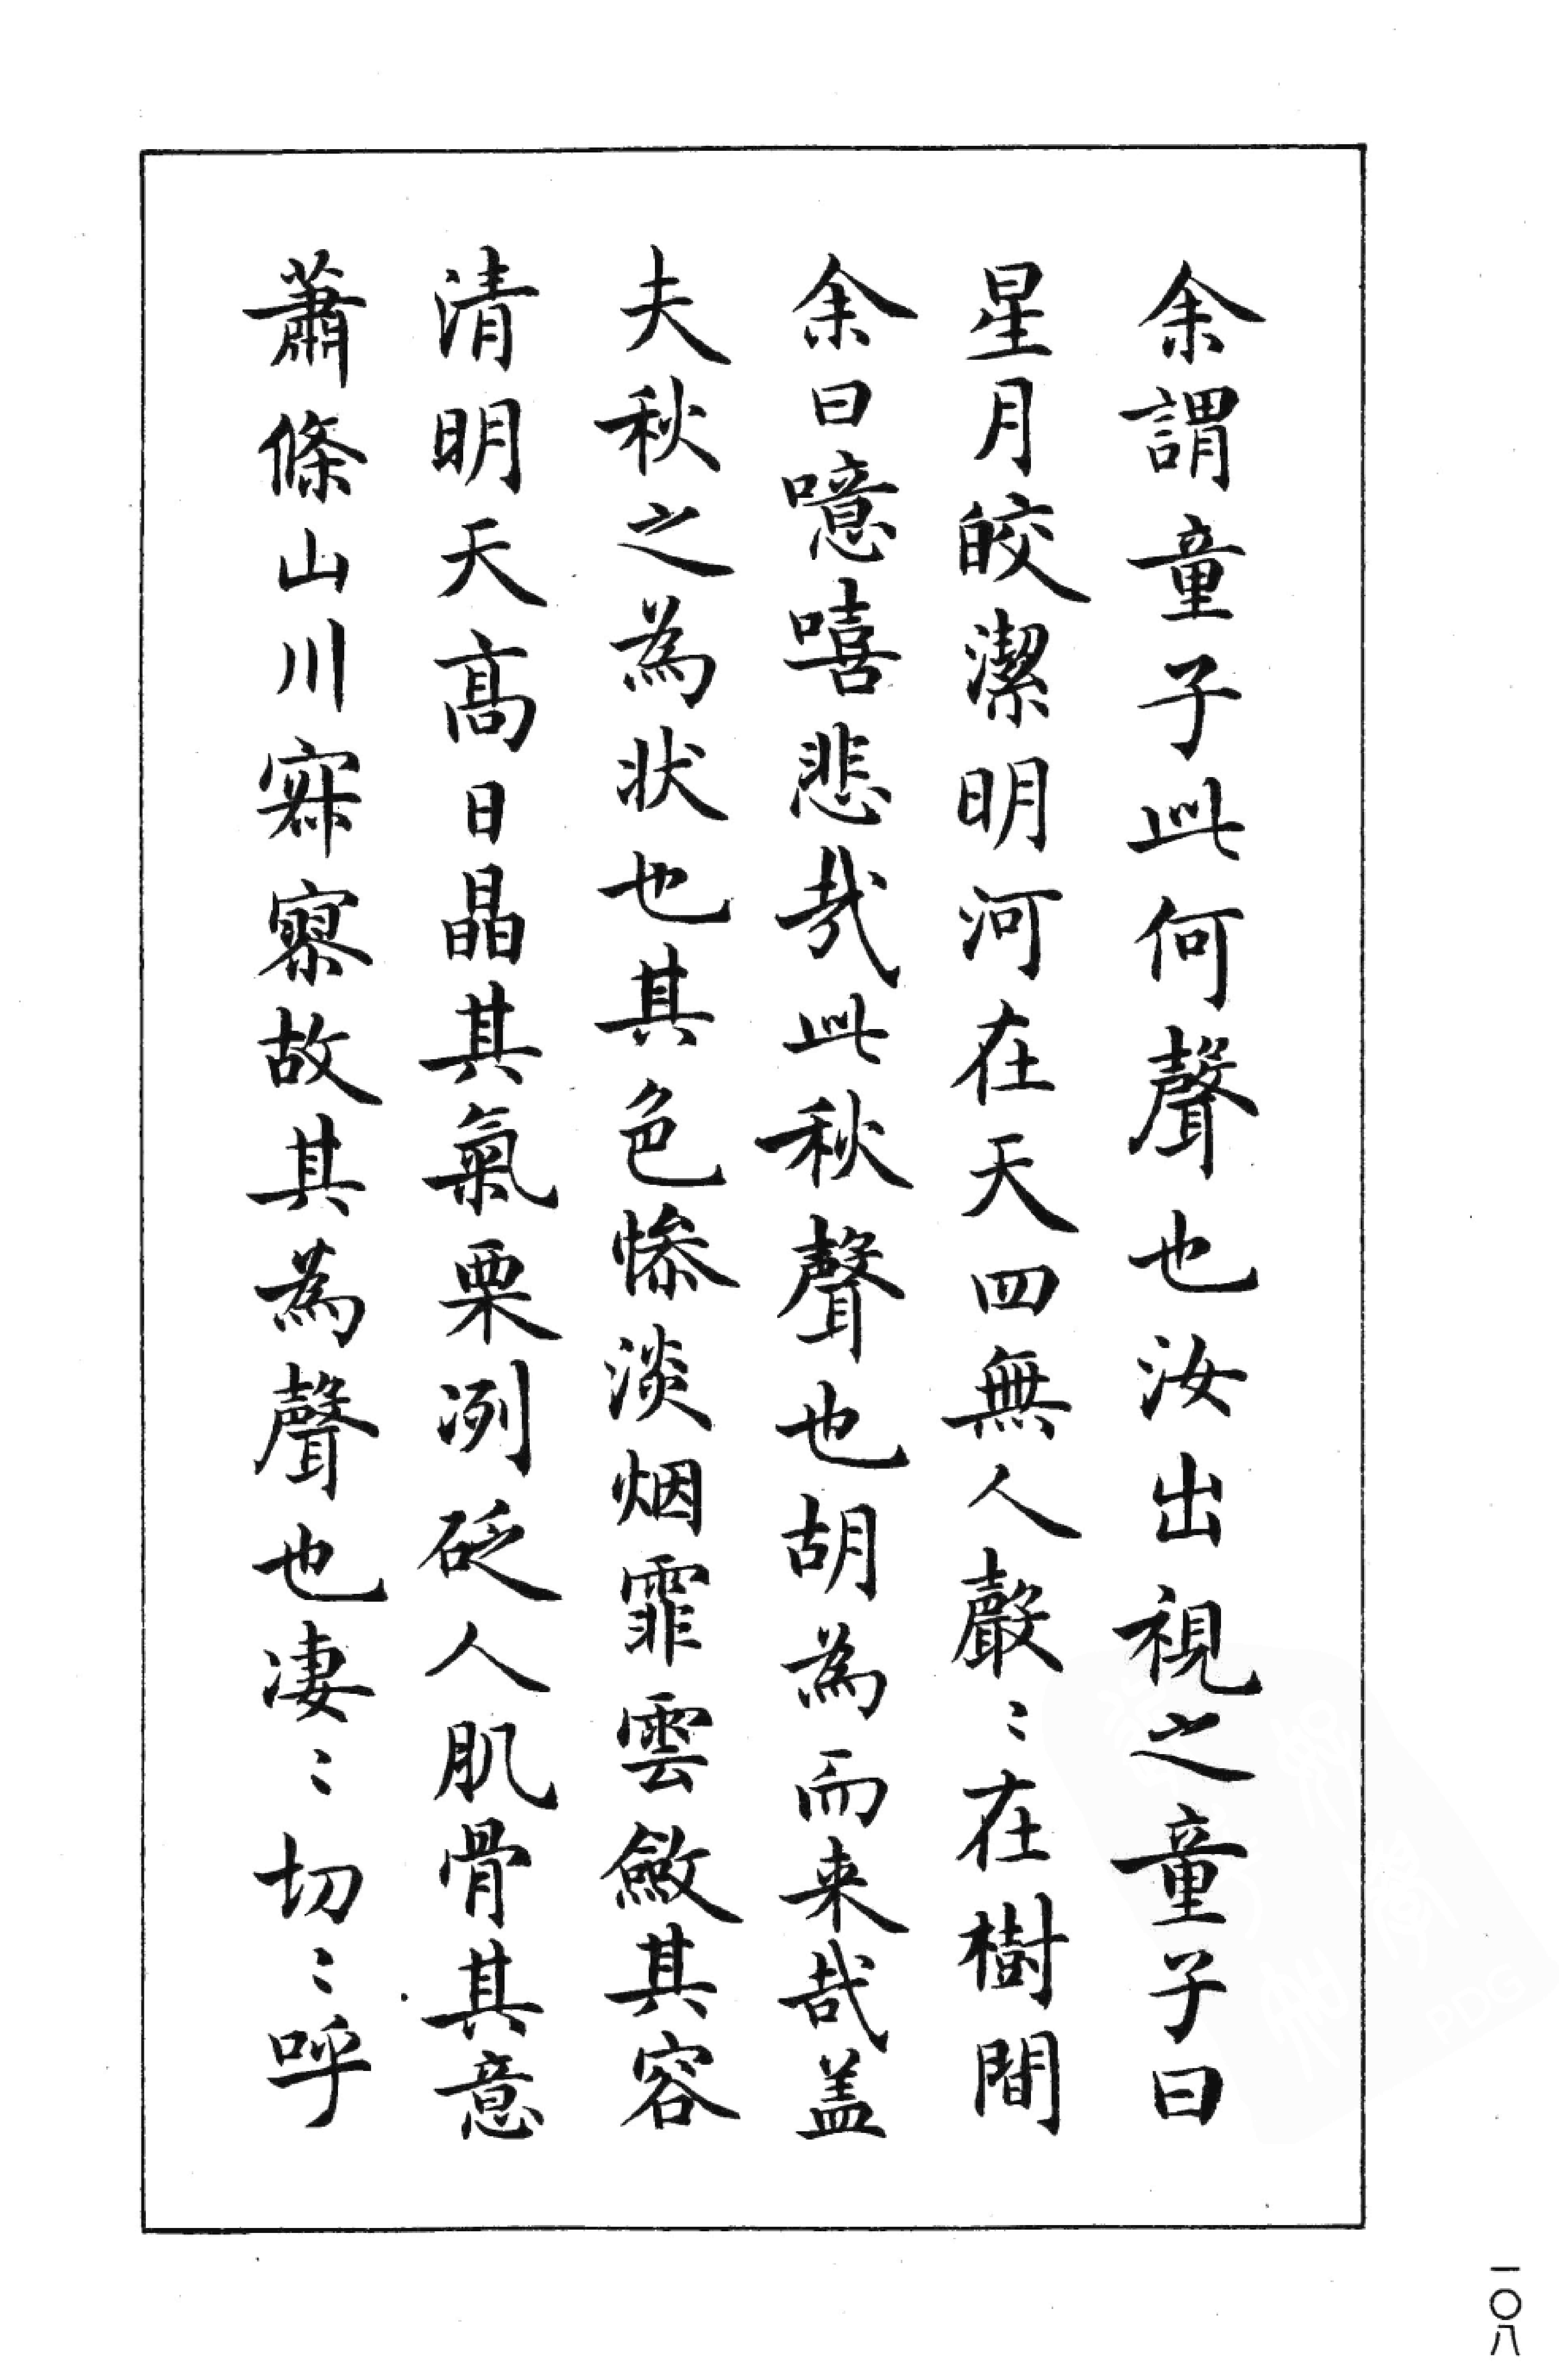 余謂童子此何聲也汝出視之童子曰
星月皎潔明河在天四無人嚴〻在樹間
余曰噫嘻悲哉此秋聲也胡為而来哉盖
夫秋之為状也其色惨淡烟霏雲斂其容
清明天高日晶其氣栗冽砭人肌骨其意
蕭條山川寂寥故其為聲也凄〻切〻呼
一〇八